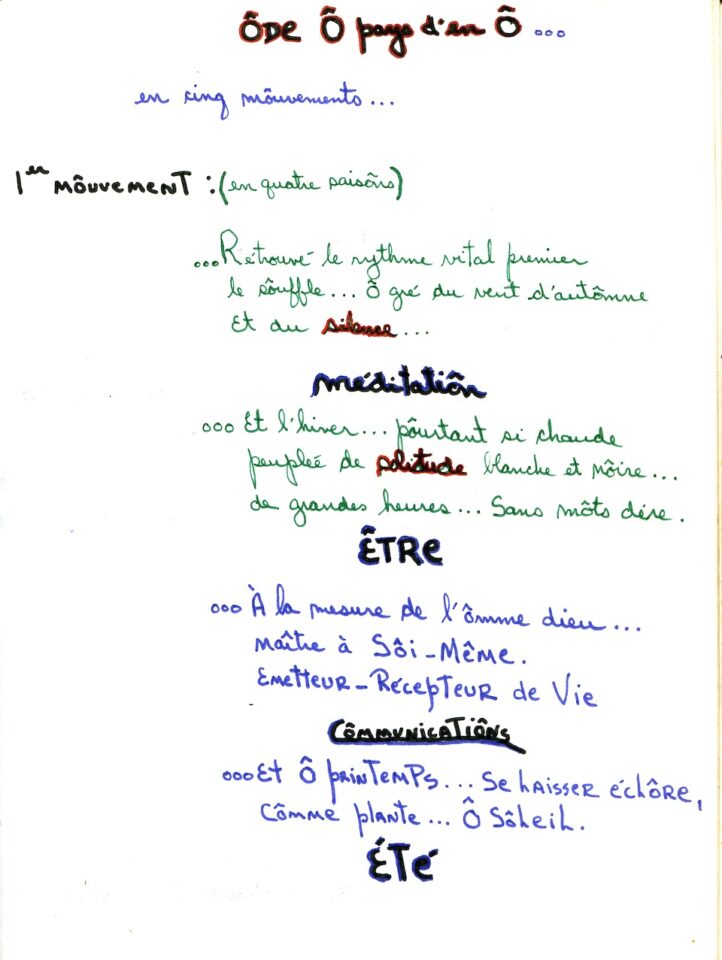 ÔDE Ô pays d'en Ô ...
en cinq môuvements...
1er MÔUVEMENT : (en quatre saisôns)
...Retrouvé le rythme vital premier
le sôuffle... Ô gré du vent d'autômne
Et du silence...
méditatiôn
... Et l'hiver... pôurtant si chaude
peupleé de solitude blanche et nôire...
de grandes heures... Sans môts dire.
ÊTRE
... À la mesure de l'ômme dieu...
Maître à Sôi-Même.
Emetteur-Récepteur de Vie
CÔMMUNICATIÔNS
... Et Ô PRINTEMPS... Se LAISSER éCLÔRE,
CÔMME PLANTE... Ô SÔLEIL.
ÉTÉ